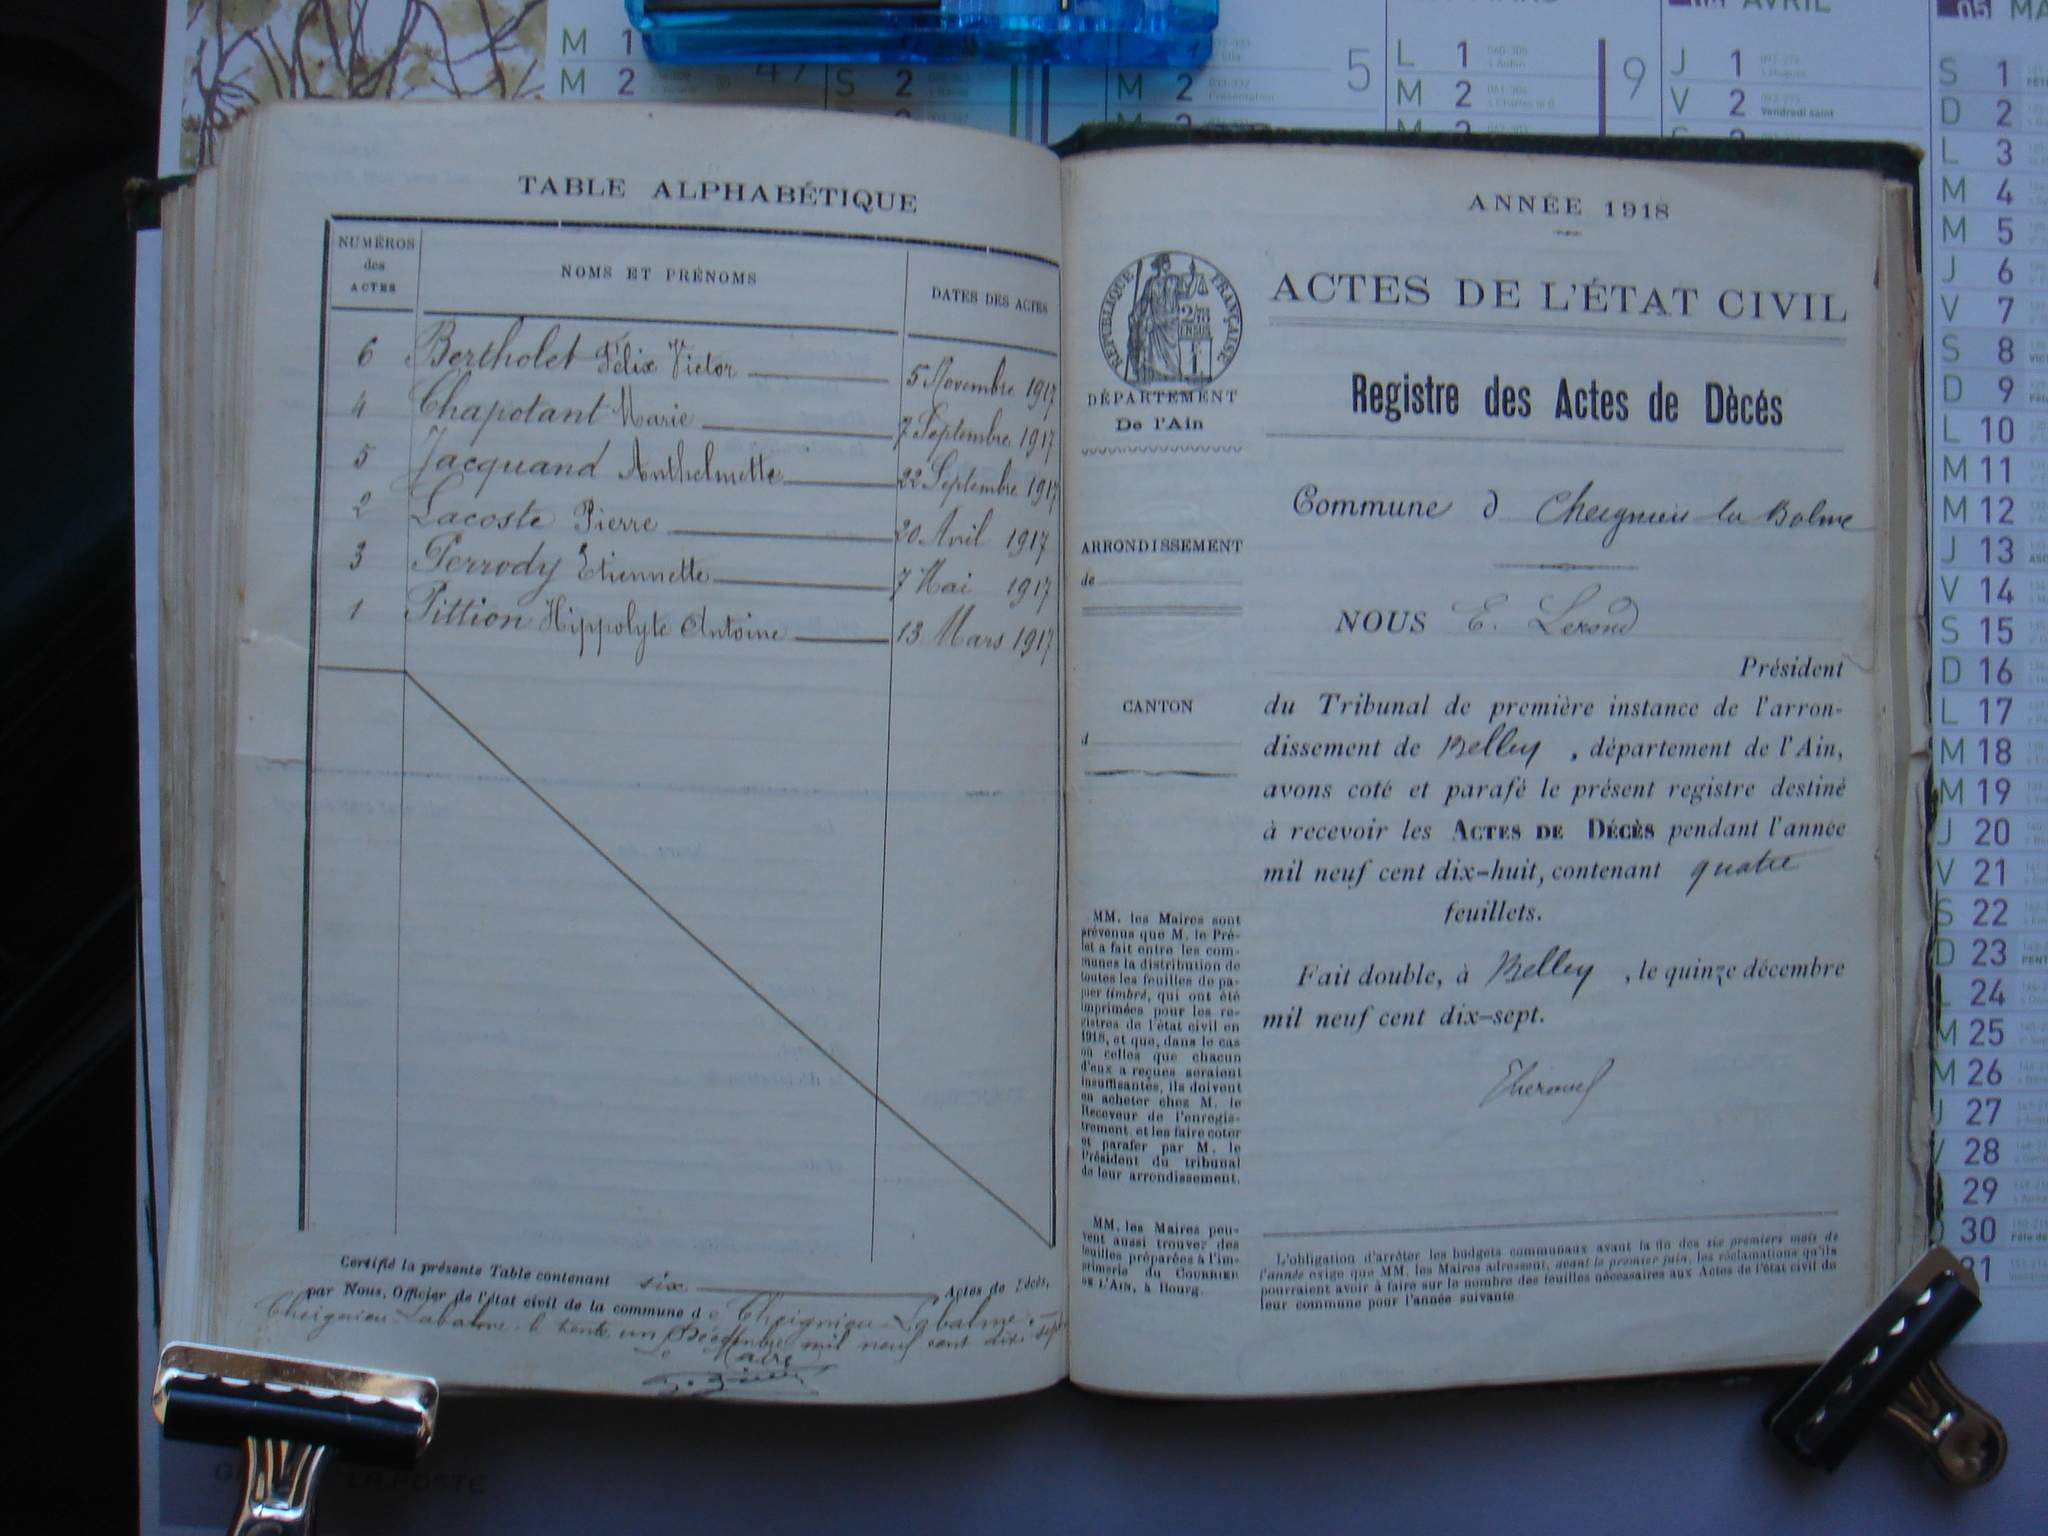 TABLE ALPHABÉTIQUE
NUMÉROS
des
ACTES
NOMS ET PRÉNOMS
DATES DES ACTES
6 Bertholet Félix Victor 5 Novembre 1917
4 Chapotant Marie 7 Septembre 1917
5 Jacquand Anthelmette 22 Septembre 1917
2 Lacoste Pierre 20 Avril 1917
3 Perrody Etiennette 7 Mai 1917
1 Pittion Hippolyte Antoine 13 Mars 1917
Certifié la présente Table contenant six Actes de Décès,
par Nous, Officier de l'état civil de la commune de Cheignieu-Labalme.
Cheignieu-Labalme, le trente un Décembre mil neuf cent dix-sept
Le Maire
ANNÉE 1918
RÉPUBLIQUE FRANÇAISE
ACTES DE L'ÉTAT CIVIL
DÉPARTEMENT
De l'Ain
Registre des Actes de Dècés
Commune d Cheignieu la Balme
ARRONDISSEMENT
de
NOUS E.
Président
CANTON
d
du Tribunal de première instance de l'arron-
dissement de Belley, département de l'Ain,
avons coté et parafé le présent registre destiné
à recevoir les ACTES DE DÉCÈS pendant l'année
mil neuf cent dix-huit, contenant quatre
feuillets.
Fait double, à Belley, le quinze décembre
mil neuf cent dix-sept.
MM. les Maires sont
prévenus que M. le Pré-
fet a fait entre les com-
munes la distribution de
toutes les feuilles de pa-
pier timbré, qui ont été
imprimées pour les re-
gistres de l'état civil en
1918, et que, dans le cas
où celles que chacun
d'eux a reçues seraient
insuffisantes, ils doivent
en acheter chez M. le
Receveur de l'enregis-
trement, et les faire coter
et parafer par M. le
Président du tribunal
de leur arrondissement.
MM. les Maires peu-
vent aussi trouver des
feuilles préparées à l'im-
primerie du COURRIER
DE L'AIN, à Bourg.
L'obligation d'arrêter les budgets communaux avant la fin des six premiers mois de
l'année exige que MM. les Maires adressent, avant le premier juin, les réclamations qu'ils
pourraient avoir à faire sur le nombre des feuilles nécessaires aux Actes de l'état civil de
leur commune pour l'année suivante
M 1
M 2
S 2
M 2
5
L 1
M 2
9
AVRIL
J 1
V 2 Vendredi saint
05 MA
S 1
D 2
L 3
M 4
M 5
J 6
V 7
S 8
D 9
L 10
M 11
M 12
J 13
V 14
S 15
D 16
L 17
M 18
M 19
J 20
V 21
S 22
D 23
L 24
M 25
M 26
J 27
V 28
29
30
LA POSTE